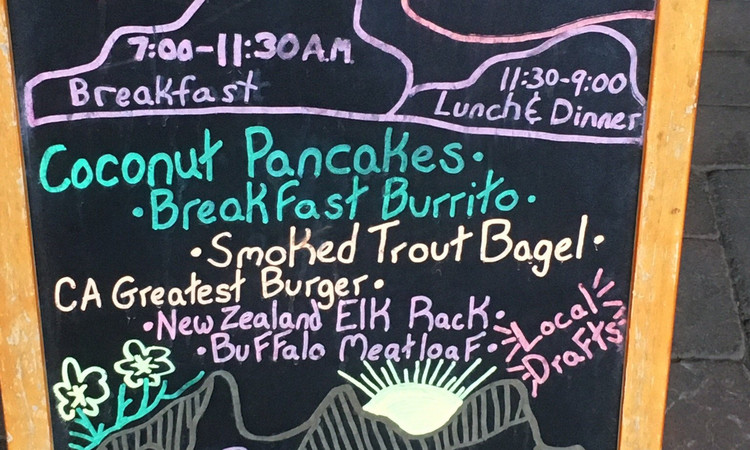 7:00-11:30 A.M.
Breakfast
11:30-9:00
Lunch & Dinner
Coconut Pancakes.
·Breakfast Burrito.
·Smoked Trout Bagel·
CA Greatest Burger·
·New Zealand Elk Rack·
·Buffalo Meatloaf·
Local
Drafts